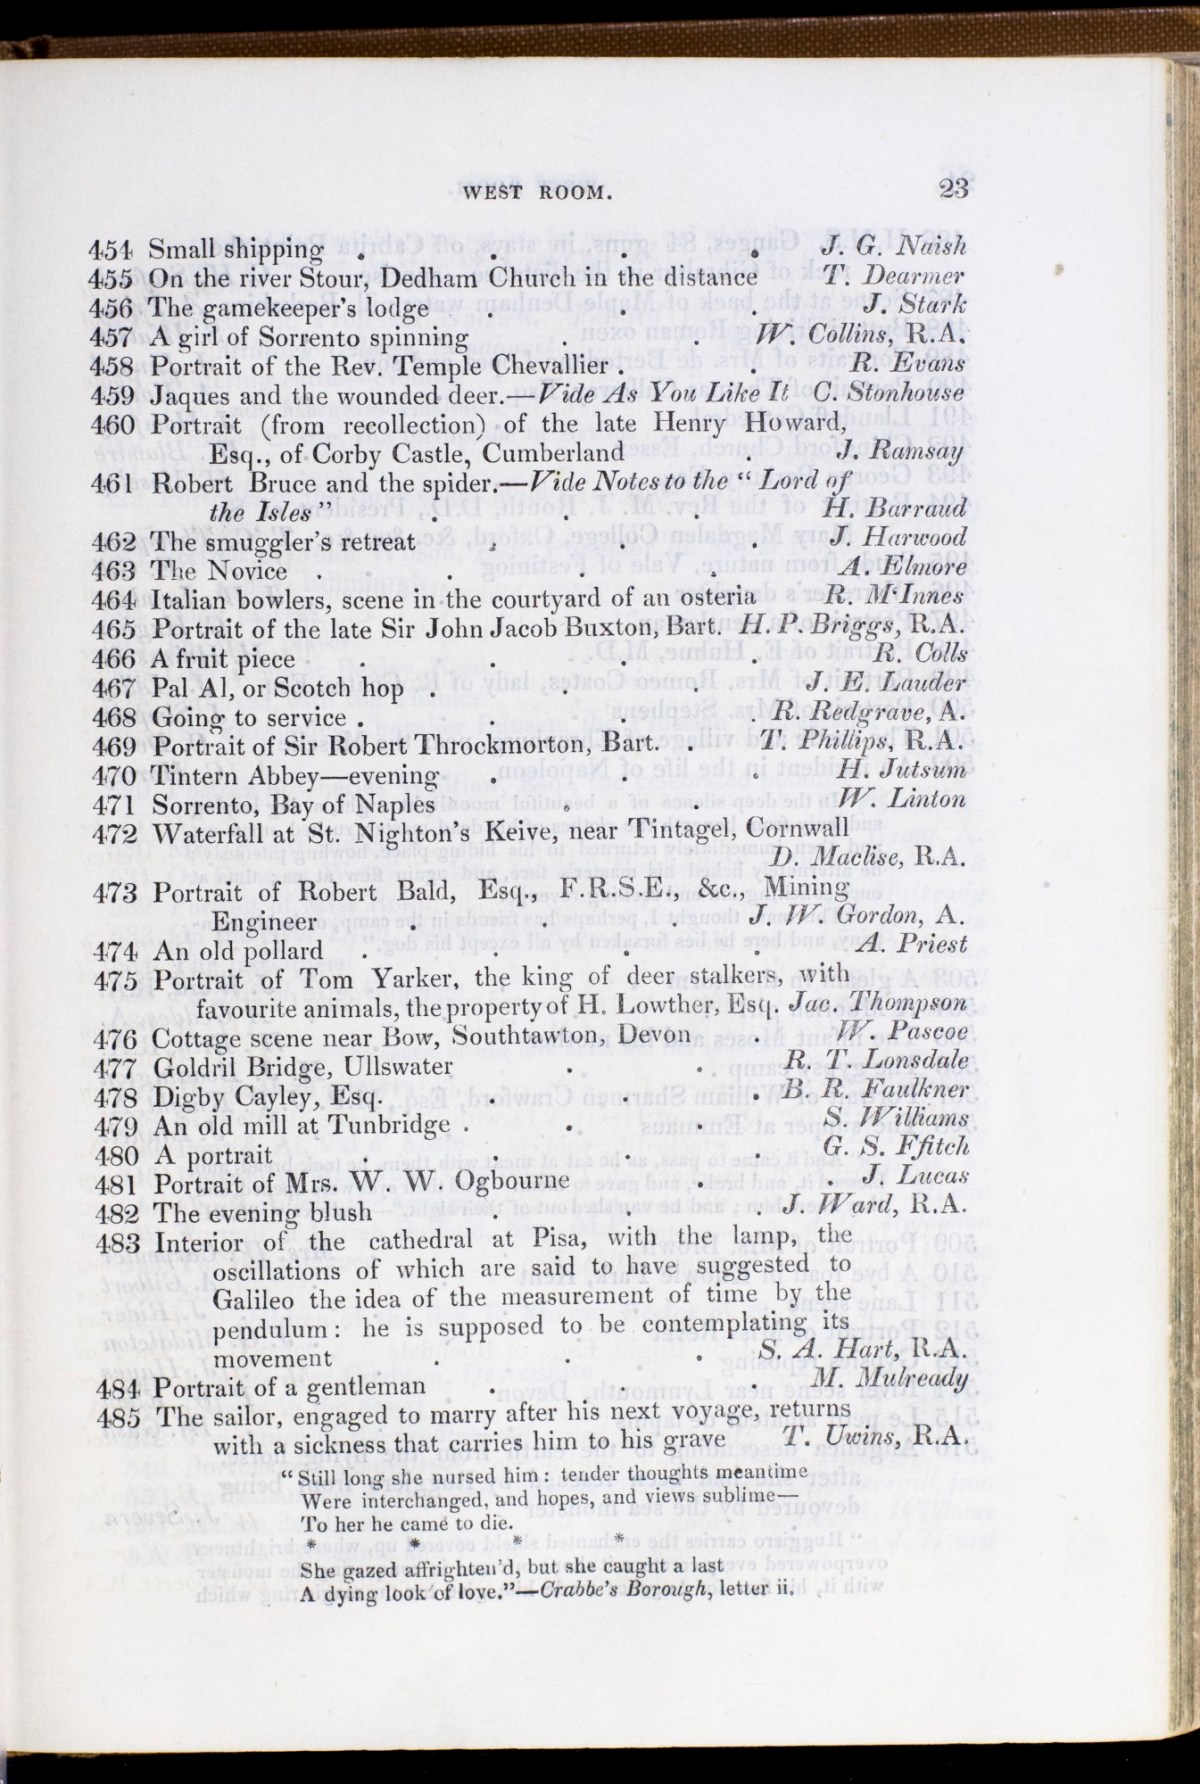 WEST ROOM. 23
454 Small shipping . . . . J. G. Naish
455 On the river Stour, Dedham Church in the distance T. Dearmer
456 The gamekeeper's lodge . . . J. Stark
457 A girl of Sorrento spinning . . W. Collins, R.A.
458 Portrait of the Rev. Temple Chevallier . . R. Evans
459 Jaques and the wounded deer.—Vide As You Like It C. Stonhouse
460 Portrait (from recollection) of the late Henry Howard,
Esq., of Corby Castle, Cumberland . J. Ramsay
461 Robert Bruce and the spider.—Vide Notes to the "Lord of
the Isles" . . . H. Barraud
462 The smuggler's retreat . . . J. Harwood
463 The Novice . . . . A. Elmore
464 Italian bowlers, scene in the courtyard of an osteria R. M'Innes
465 Portrait of the late Sir John Jacob Buxton, Bart. H. P. Briggs, R.A.
466 A fruit piece . . . . R. Colls
467 Pal Al, or Scotch hop . . . J. E. Lauder
468 Going to service . . . . R. Redgrave, A.
469 Portrait of Sir Robert Throckmorton, Bart. . T. Phillips, R.A.
470 Tintern Abbey—evening . . . H. Jutsum
471 Sorrento, Bay of Naples . . W. Linton
472 Waterfall at St. Nighton's Keive, near Tintagel, Cornwall
D. Maclise, R.A.
473 Portrait of Robert Bald, Esq., F.R.S.E., &c., Mining
Engineer . . . J. W. Gordon, A.
474 An old pollard . . . . A. Priest
475 Portrait of Tom Yarker, the king of deer stalkers, with
favourite animals, the property of H. Lowther, Esq. Jac. Thompson
476 Cottage scene near Bow, Southtawton, Devon . W. Pascoe
477 Goldril Bridge, Ullswater . . R. T. Lonsdale
478 Digby Cayley, Esq. . . . B. R. Faulkner
479 An old mill at Tunbridge . . . S. Williams
480 A portrait . . . . G. S. Ffitch
481 Portrait of Mrs. W. W. Ogbourne . . J. Lucas
482 The evening blush . . . J. Ward, R.A.
483 Interior of the cathedral at Pisa, with the lamp, the
oscillations of which are said to have suggested to
Galileo the idea of the measurement of time by the
pendulum: he is supposed to be contemplating its
movement . . . S. A. Hart, R.A.
484 Portrait of a gentleman . . . M. Mulready
485 The sailor, engaged to marry after his next voyage, returns
with a sickness that carries him to his grave T. Uwins, R.A.
"Still long she nursed him: tender thoughts meantime
Were interchanged, and hopes, and views sublime—
To her he came to die.
* * * *
She gazed affrighten'd, but she caught a last
A dying look of love."—Crabbe's Borough, letter ii.